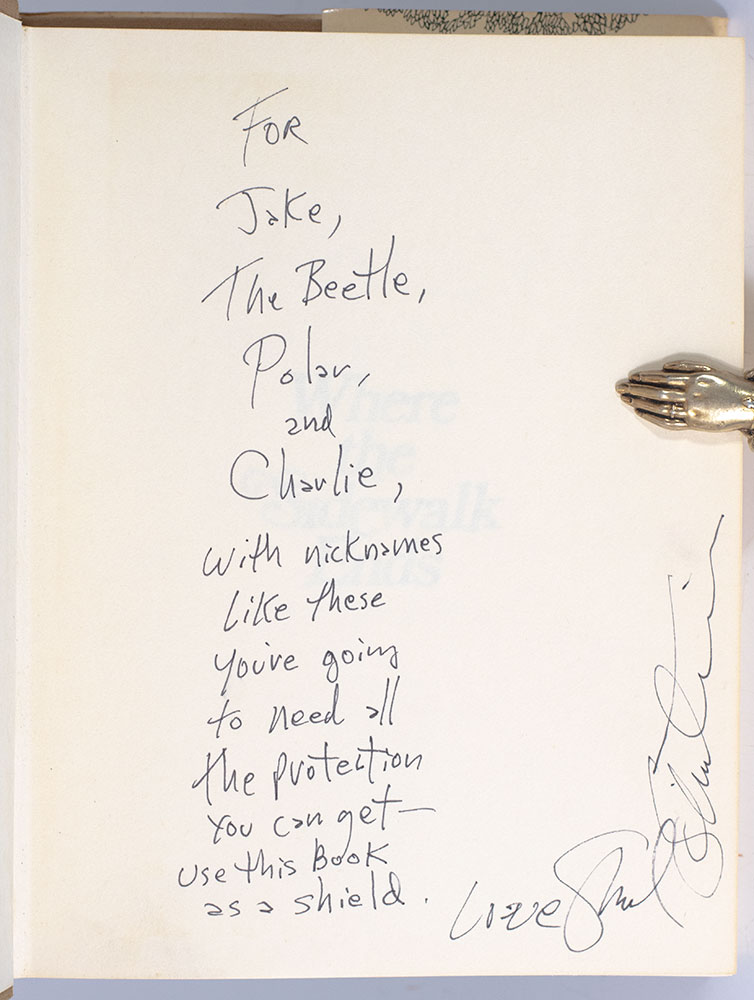 FOR
Jake,
The Beetle,
Polar,
and
Charlie,
with nicknames
Like these
you're going
to need all
the protection
You can get—
use this Book
as a shield.
Love Shel Silverstein
Where
the
Sidewalk
Ends